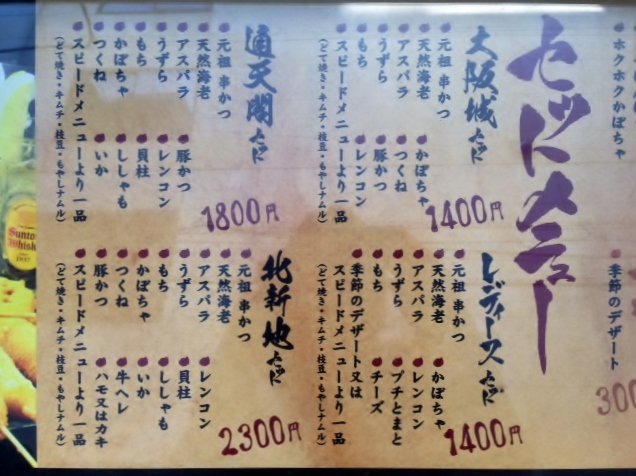 ホクホクかぼちゃ
季節のデザート
300
セットメニュー
大阪城セット
元祖 串かつ
天然海老
かぼちゃ
アスパラ
つくね
うずら
豚かつ
もち
レンコン
スピードメニューより一品
(どて焼き・キムチ・枝豆・もやしナムル)
1400円
通天閣セット
元祖 串かつ
天然海老
アスパラ
豚かつ
うずら
レンコン
もち
貝柱
かぼちゃ
ししゃも
つくね
いか
スピードメニューより一品
(どて焼き・キムチ・枝豆・もやしナムル)
1800円
レディースセット
元祖 串かつ
天然海老
かぼちゃ
アスパラ
レンコン
うずら
プチとまと
もち
チーズ
季節のデザート又は
スピードメニューより一品
(どて焼き・キムチ・枝豆・もやしナムル)
1400円
北新地セット
元祖 串かつ
天然海老
アスパラ
レンコン
うずら
貝柱
もち
ししゃも
かぼちゃ
いか
つくね
牛ヘレ
豚かつ
ハモ又はカキ
スピードメニューより一品
(どて焼き・キムチ・枝豆・もやしナムル)
2300円
Suntory
Whisky